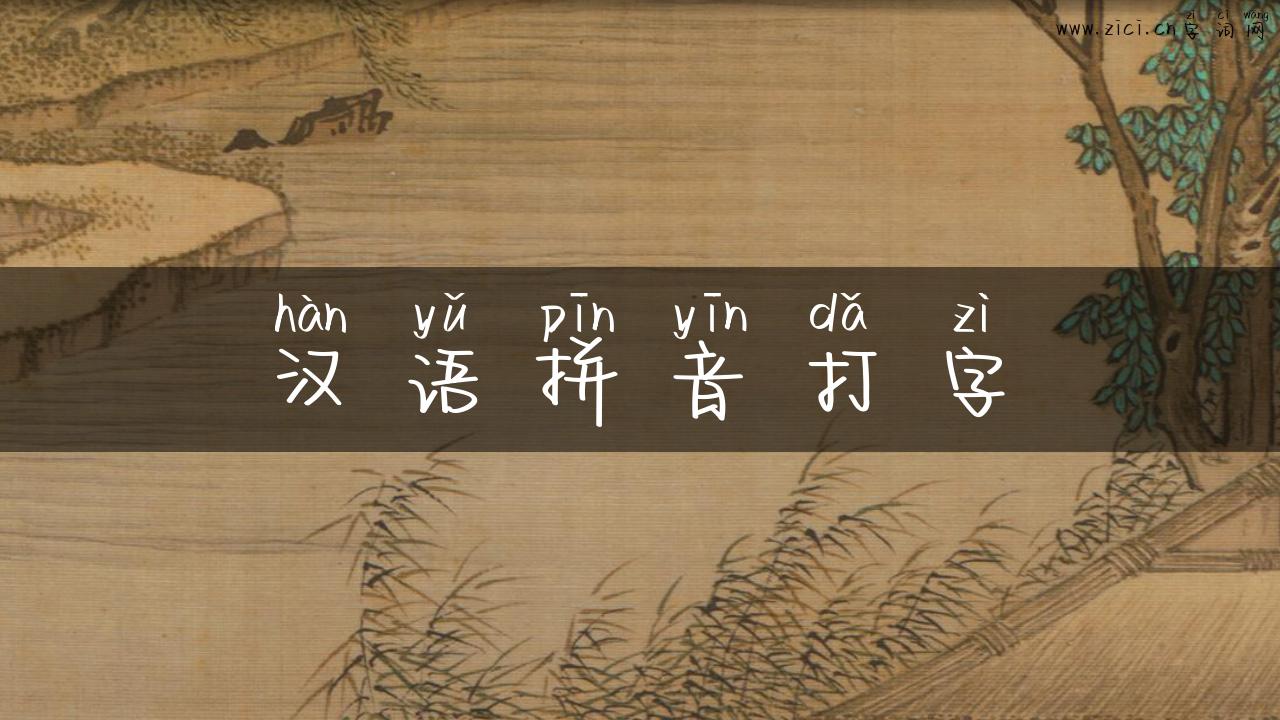 zì cí wǎng
www.zici.cn字词网
hàn yǔ pīn yīn dǎ zì
汉语拼音打字